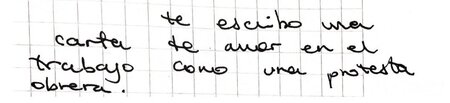 te escribo una
carta de amor en el
trabajo como una protesta
obrera.